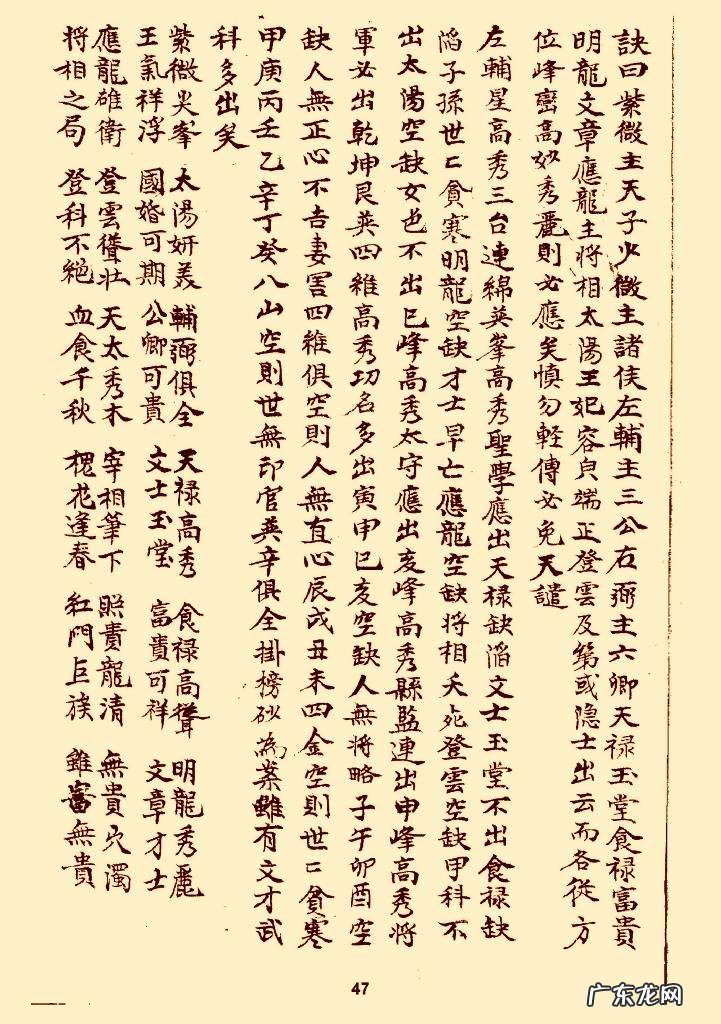 訣曰紫微主天子少微主諸侯左輔主三公右弼主六卿天禄玉堂食禄富貴
明龍文章應龍主将相太陽王妃容皃端正登雲及第或隐士出云而各從方
位峰巒高妙秀麗則必應矣慎勿軽傳必免天譴
左輔星高秀三台連綿英峯高秀聖學應出天禄缺陷文士玉堂不出食禄缺
陷子孫世〻貧寒明龍空缺才士早亡應龍空缺将相夭死登雲空缺甲科不
出太陽空缺女也不出巳峰高秀太守應出亥峰高秀縣監連出申峰高秀将
軍必出乾坤艮巽四維高秀功名多出寅申巳亥空缺人無将略子午卯酉空
缺人無正心不吉妻害四維俱空則人無直心辰戌丑未四金空則世〻貧寒
甲庚丙壬乙辛丁癸八山空則世無印官巽辛俱全掛榜砂為業雖有文才武
科多出矣
紫微尖峯 太陽妍美 輔弼俱全 天禄高秀 食禄高聳 明龍秀麗
王氣祥浮 國婚可期 公卿可貴 文士玉堂 富貴可祥 文章才士
應龍雄衛 登雲聳壮 天太秀木 宰相筆下 照貴龍清 無貴穴濁
将相之局 登科不絕 血食千秋 槐花逢春 紅門巨族 雖富無貴
47
广东龙网